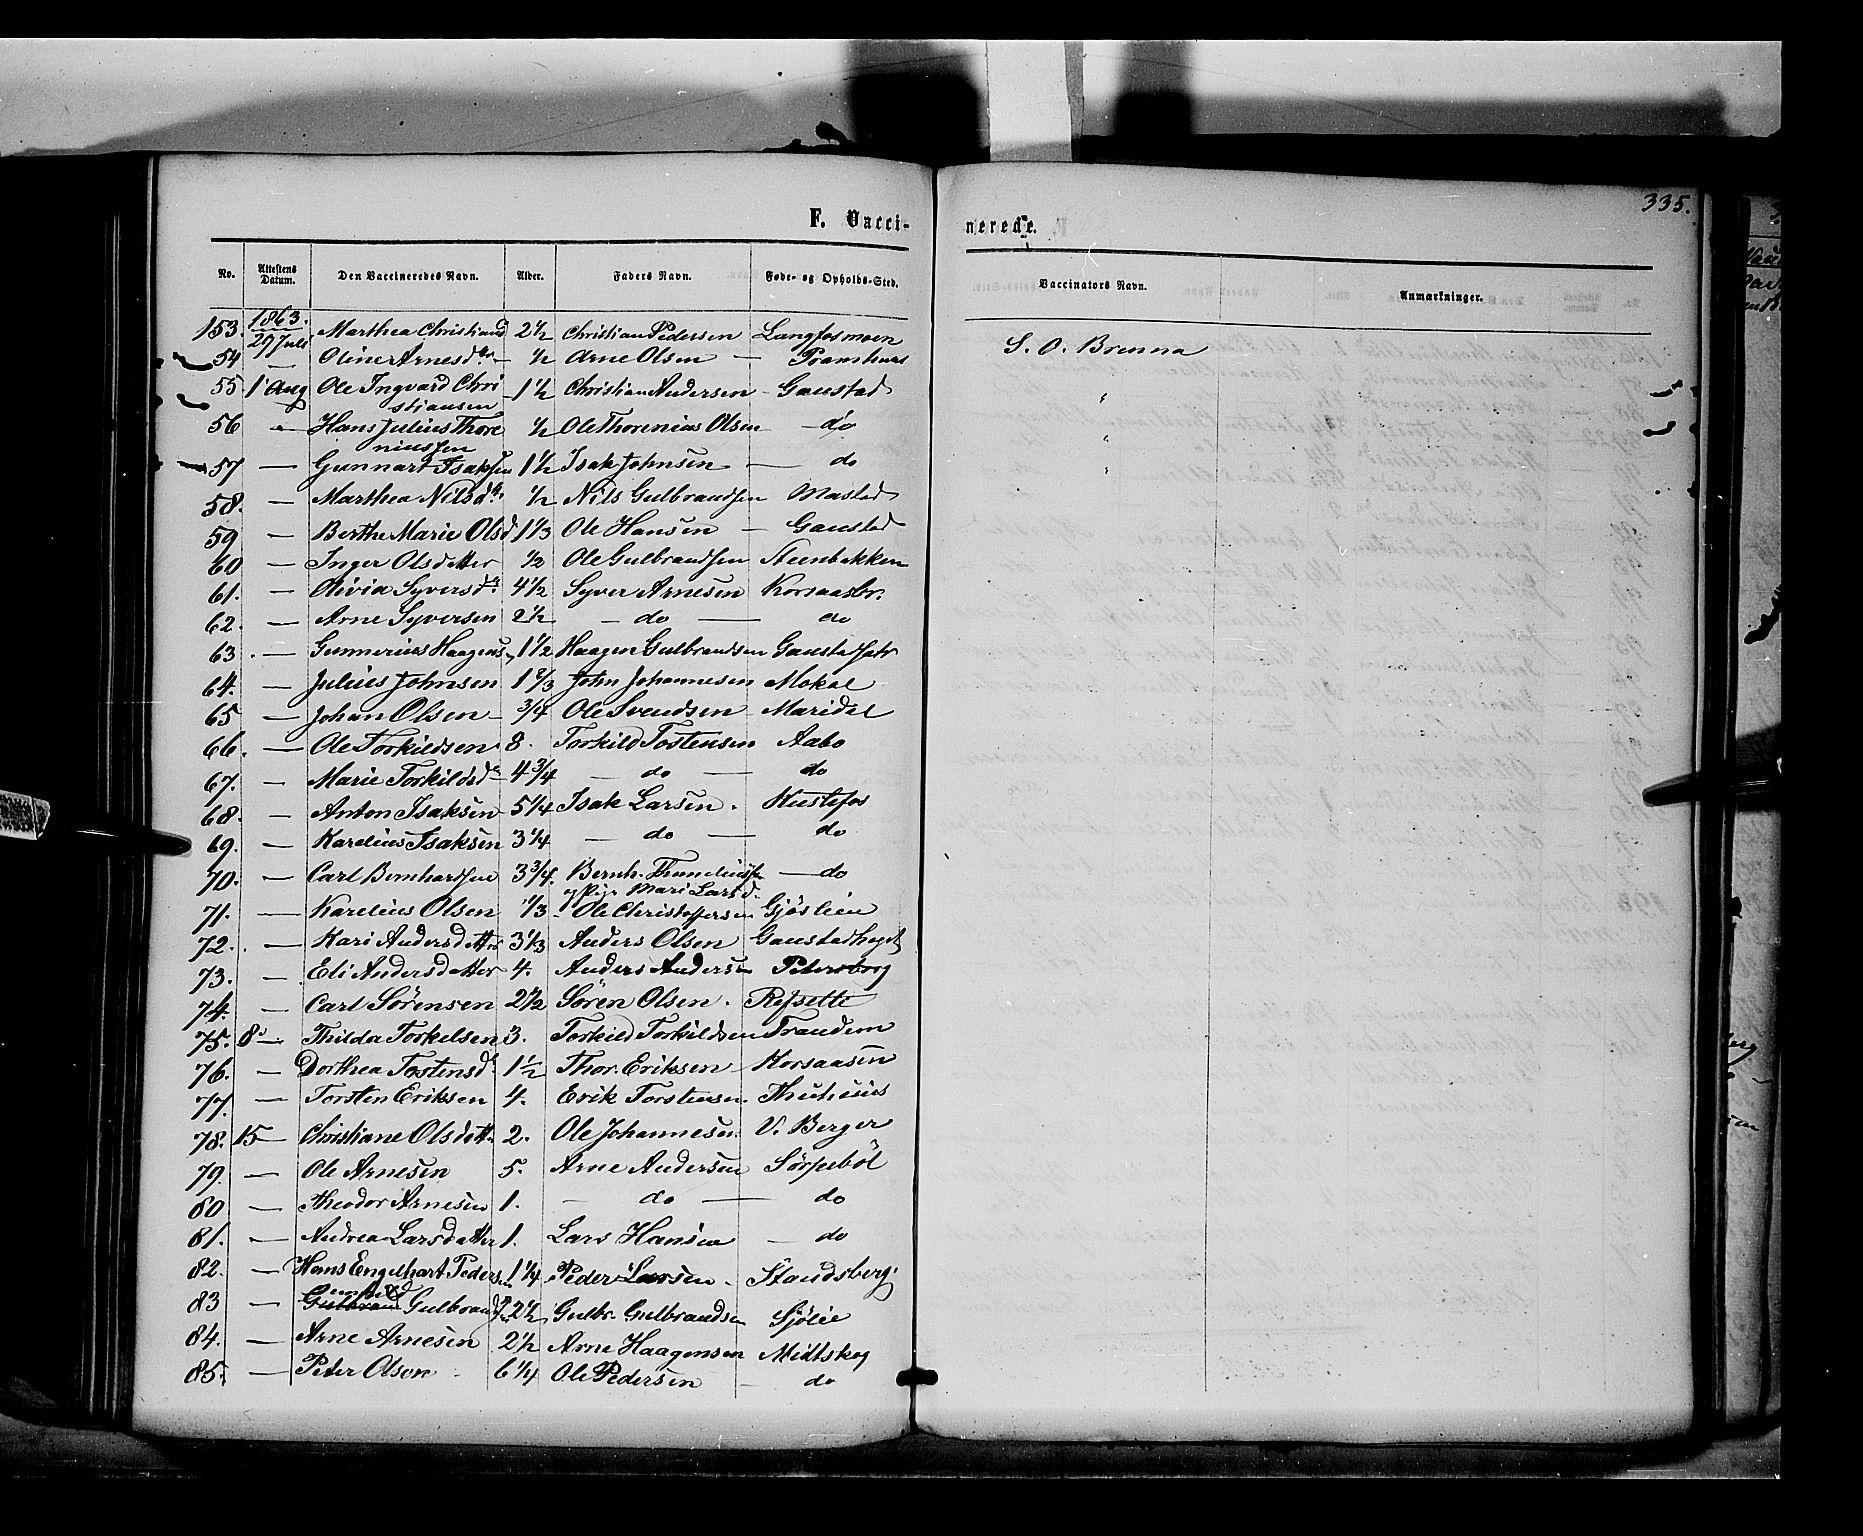 335.
F. Vacci-
nerede.
No. Attestens Datum. Den Vaccineredes Navn. Alder. Faders Navn. Føde- og Opholds-Sted. Vaccinators Navn. Anmærkninger.
1863.
153. 29 Juli Marthea Christiansd 2½ Christian Pedersen Langfosmoen S. O. Brenna
54 — Oline Arnesdtr — ½ Arne Olsen —
55. 1 Aug Ole Ingvard Chri 1½ Christian Andersen — Gaustad "
stiansen
56 — Hans Julius Thore ½ Ole Thorenius Olsen — do "
niussen
57 — Gunnart Isaksen 1½ Isak Johnsen — do "
58. — Marthea Nilsdtr ½ Nils Gulbrandsen Mastad
59 — Berthe Marie Olsd 1⅓ Ole Hansen — Gaustad
60 — Inger Olsdatter ½ Ole Gulbrandsen Steenbakken
61. — Olivia Syversdtr 4½ Syver Arnesen Korsaasbr.
62. — Arne Syversen 2½ — do — do
63. — Gunnerius Haagens. 1½ Haagen Gulbrandsen
64. — Julius Johnsen 1⅔ John Johannesen Mokal
65 — Johan Olsen — ¾ Ole Svendsen — Maridal
66. — Ole Torkildsen 8. Torkild Tostensen Aabo
67. — Marie Torkildsd 4¾ — do — do
68. — Anton Isaksen 5¼ Isak Larsen. Kustefos
69. — Karelius Isaksen 3¼ — do — do
70. — Carl Bernhardsen 3¾. Bernh. — do
Pige Mari Larsd.
71. — Karelius Olsen ⅓ Ole Christoffersen Gjøslien
72. — Kari Andersdatter 3⅓ Anders Olsen Gaustadhagt
73. — Eli Andersdatter 4. Anders Andersen Petersborg
74. — Carl Sørensen 2½ Søren Olsen. Refsette
75. 8 — Thilda Torkelsen 3. Torkild Torkildsen Frandem
76. — Dorthea Tostensd 1½ Thor. Eriksen Korsaasen
77. — Torsten Eriksen 4. Erik Torstensen.
78. 15 — Christiane Olsdatt. 2. Ole Johannesen V. Berger
79. — Ole Arnesen 5. Arne Andersen Sørpebøl
80 — Theodor Arnesen 1. — do — do
81. — Andrea Larsdatter 1. Lars Hansen — do
82. — Hans Engelhart Peders. 1¼ Peder Larsen — Standsberg
83 — Gulbrand Gulbrands. 2½ Gulbr. Gulbrandsen Sjølie
84. — Arne Arnesen 2½ Arne Haagensen Midtskog
85. — Peter Olsen 6¼ Ole Pedersen — do